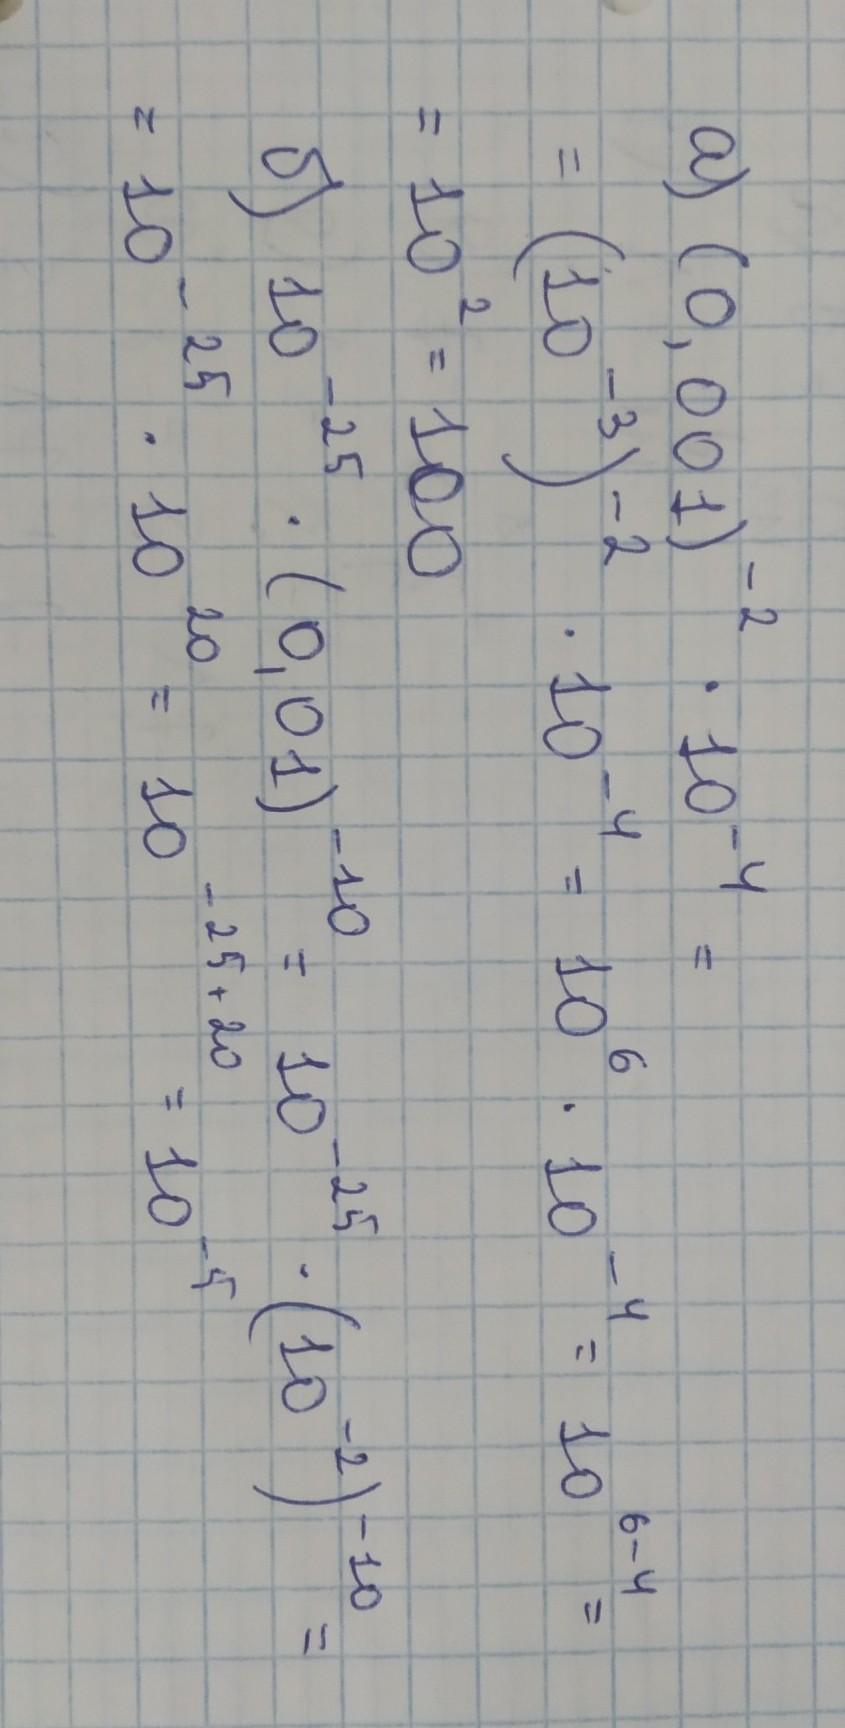 а) (0,001)⁻² · 10⁻⁴ =
= (10⁻³)⁻² · 10⁻⁴ = 10⁶ · 10⁻⁴ = 10⁶⁻⁴ =
= 10² = 100
б) 10⁻²⁵ · (0,01)⁻¹⁰ = 10⁻²⁵ · (10⁻²)⁻¹⁰ =
= 10⁻²⁵ · 10²⁰ = 10⁻²⁵⁺²⁰ = 10⁻⁵